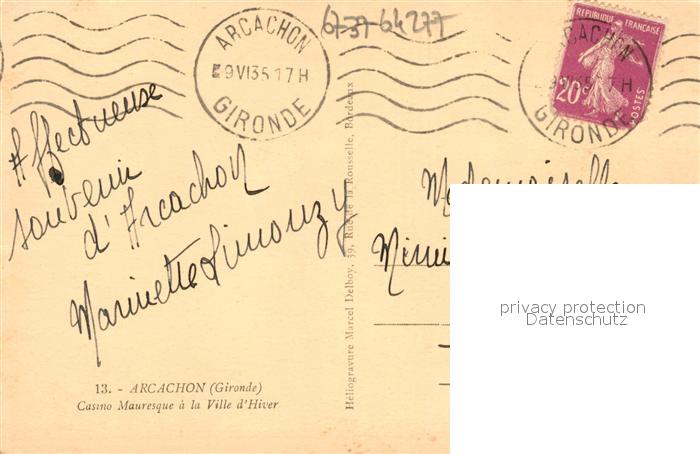 67-37-64277
ARCACHON
9 VI 35 17H
GIRONDE
REPUBLIQUE FRANÇAISE
20c
POSTES
ARCACHON
GIRONDE
Affectueuse
souvenir
d'Arcachon
Marinette Limouzy
Mademoiselle
privacy protection
Datenschutz
Héliogravure Marcel Delboy, 39, Rue de la Rousselle, Bordeaux
13. - ARCACHON (Gironde)
Casino Mauresque à la Ville d'Hiver